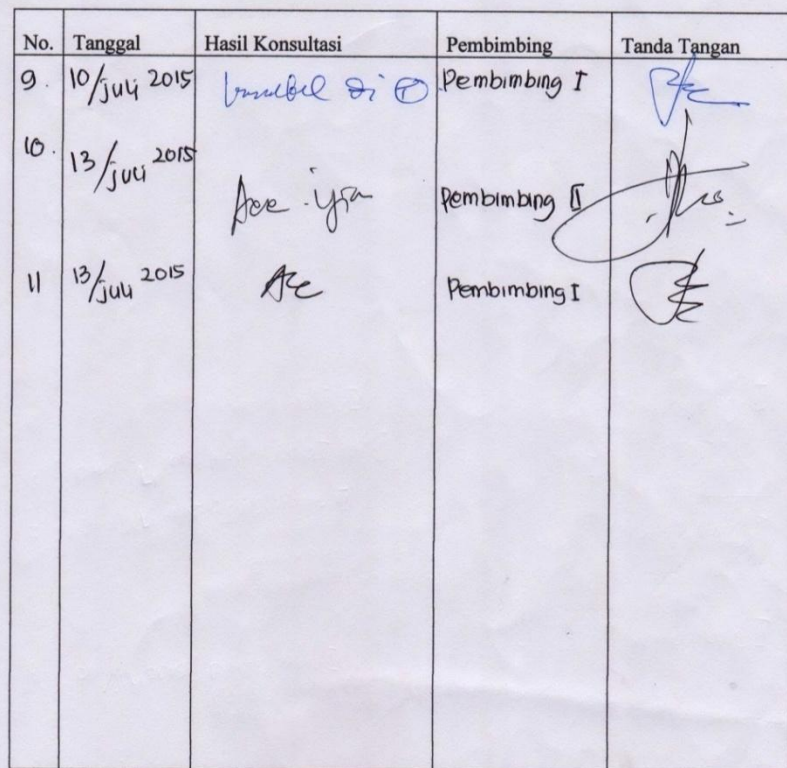 No. Tanggal Hasil Konsultasi Pembimbing Tanda Tangan
9. 10/juli 2015 di Pembimbing I
10. 13/juli 2015 Acc Pembimbing II
11 13/juli 2015 Acc Pembimbing I